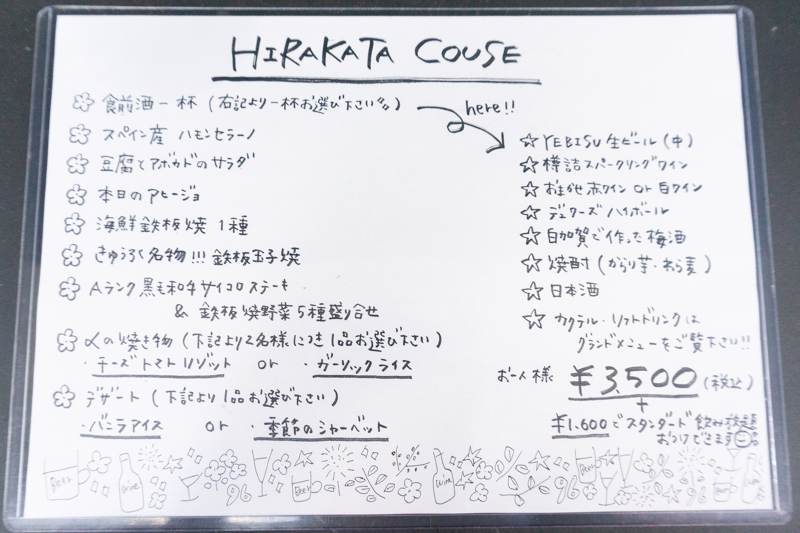 HIRAKATA COUSE
食前酒一杯(右記より一杯お選び下さい)
here!!
スペイン産 ハモンセラーノ
豆腐とアボカドのサラダ
本日のアヒージョ
海鮮鉄板焼 1種
きゅうろく名物!!! 鉄板玉子焼
Aランク黒毛和牛サイコロステーキ
& 鉄板焼野菜5種盛り合せ
〆の焼き物(下記より2名様につき1品お選び下さい)
・チーズトマトリゾット or ・ガーリックライス
デザート(下記より1品お選び下さい)
・バニラアイス or ・季節のシャーベット
☆ YEBISU 生ビール(中)
☆ 樽詰スパークリングワイン
☆ おまかせ赤ワイン or 白ワイン
☆ デュワーズハイボール
☆ 白加賀で作った梅酒
☆ 焼酎(からり芋・わら麦)
☆ 日本酒
☆ カクテル・ソフトドリンクは
グランドメニューをご覧下さい!!
お一人様 ¥3,500(税込)
+
¥1,600でスタンダード飲み放題
おつけできます
Beer
wine
96
Beer
wine
96
Beer
96